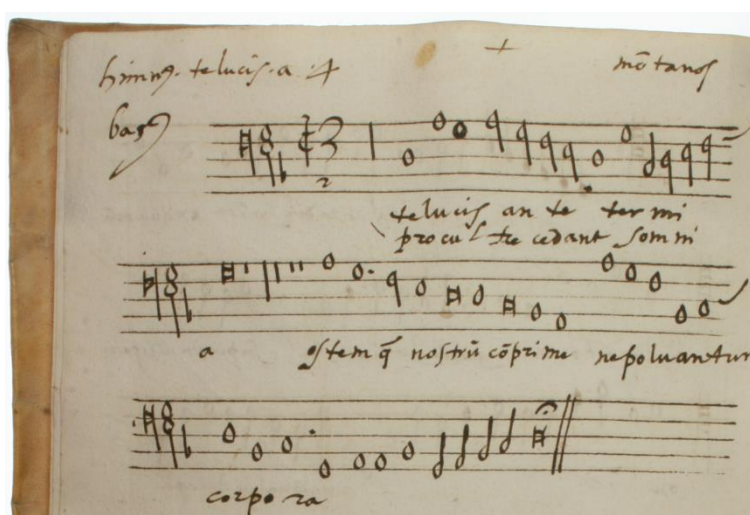 himnꝰ. te lucis. a .4
mõtanos
basꝰ
te lucis an te ter mi
procul re cedant somni
a ostem q̃ nostrũ cõprime ne poluantur
corpo ra